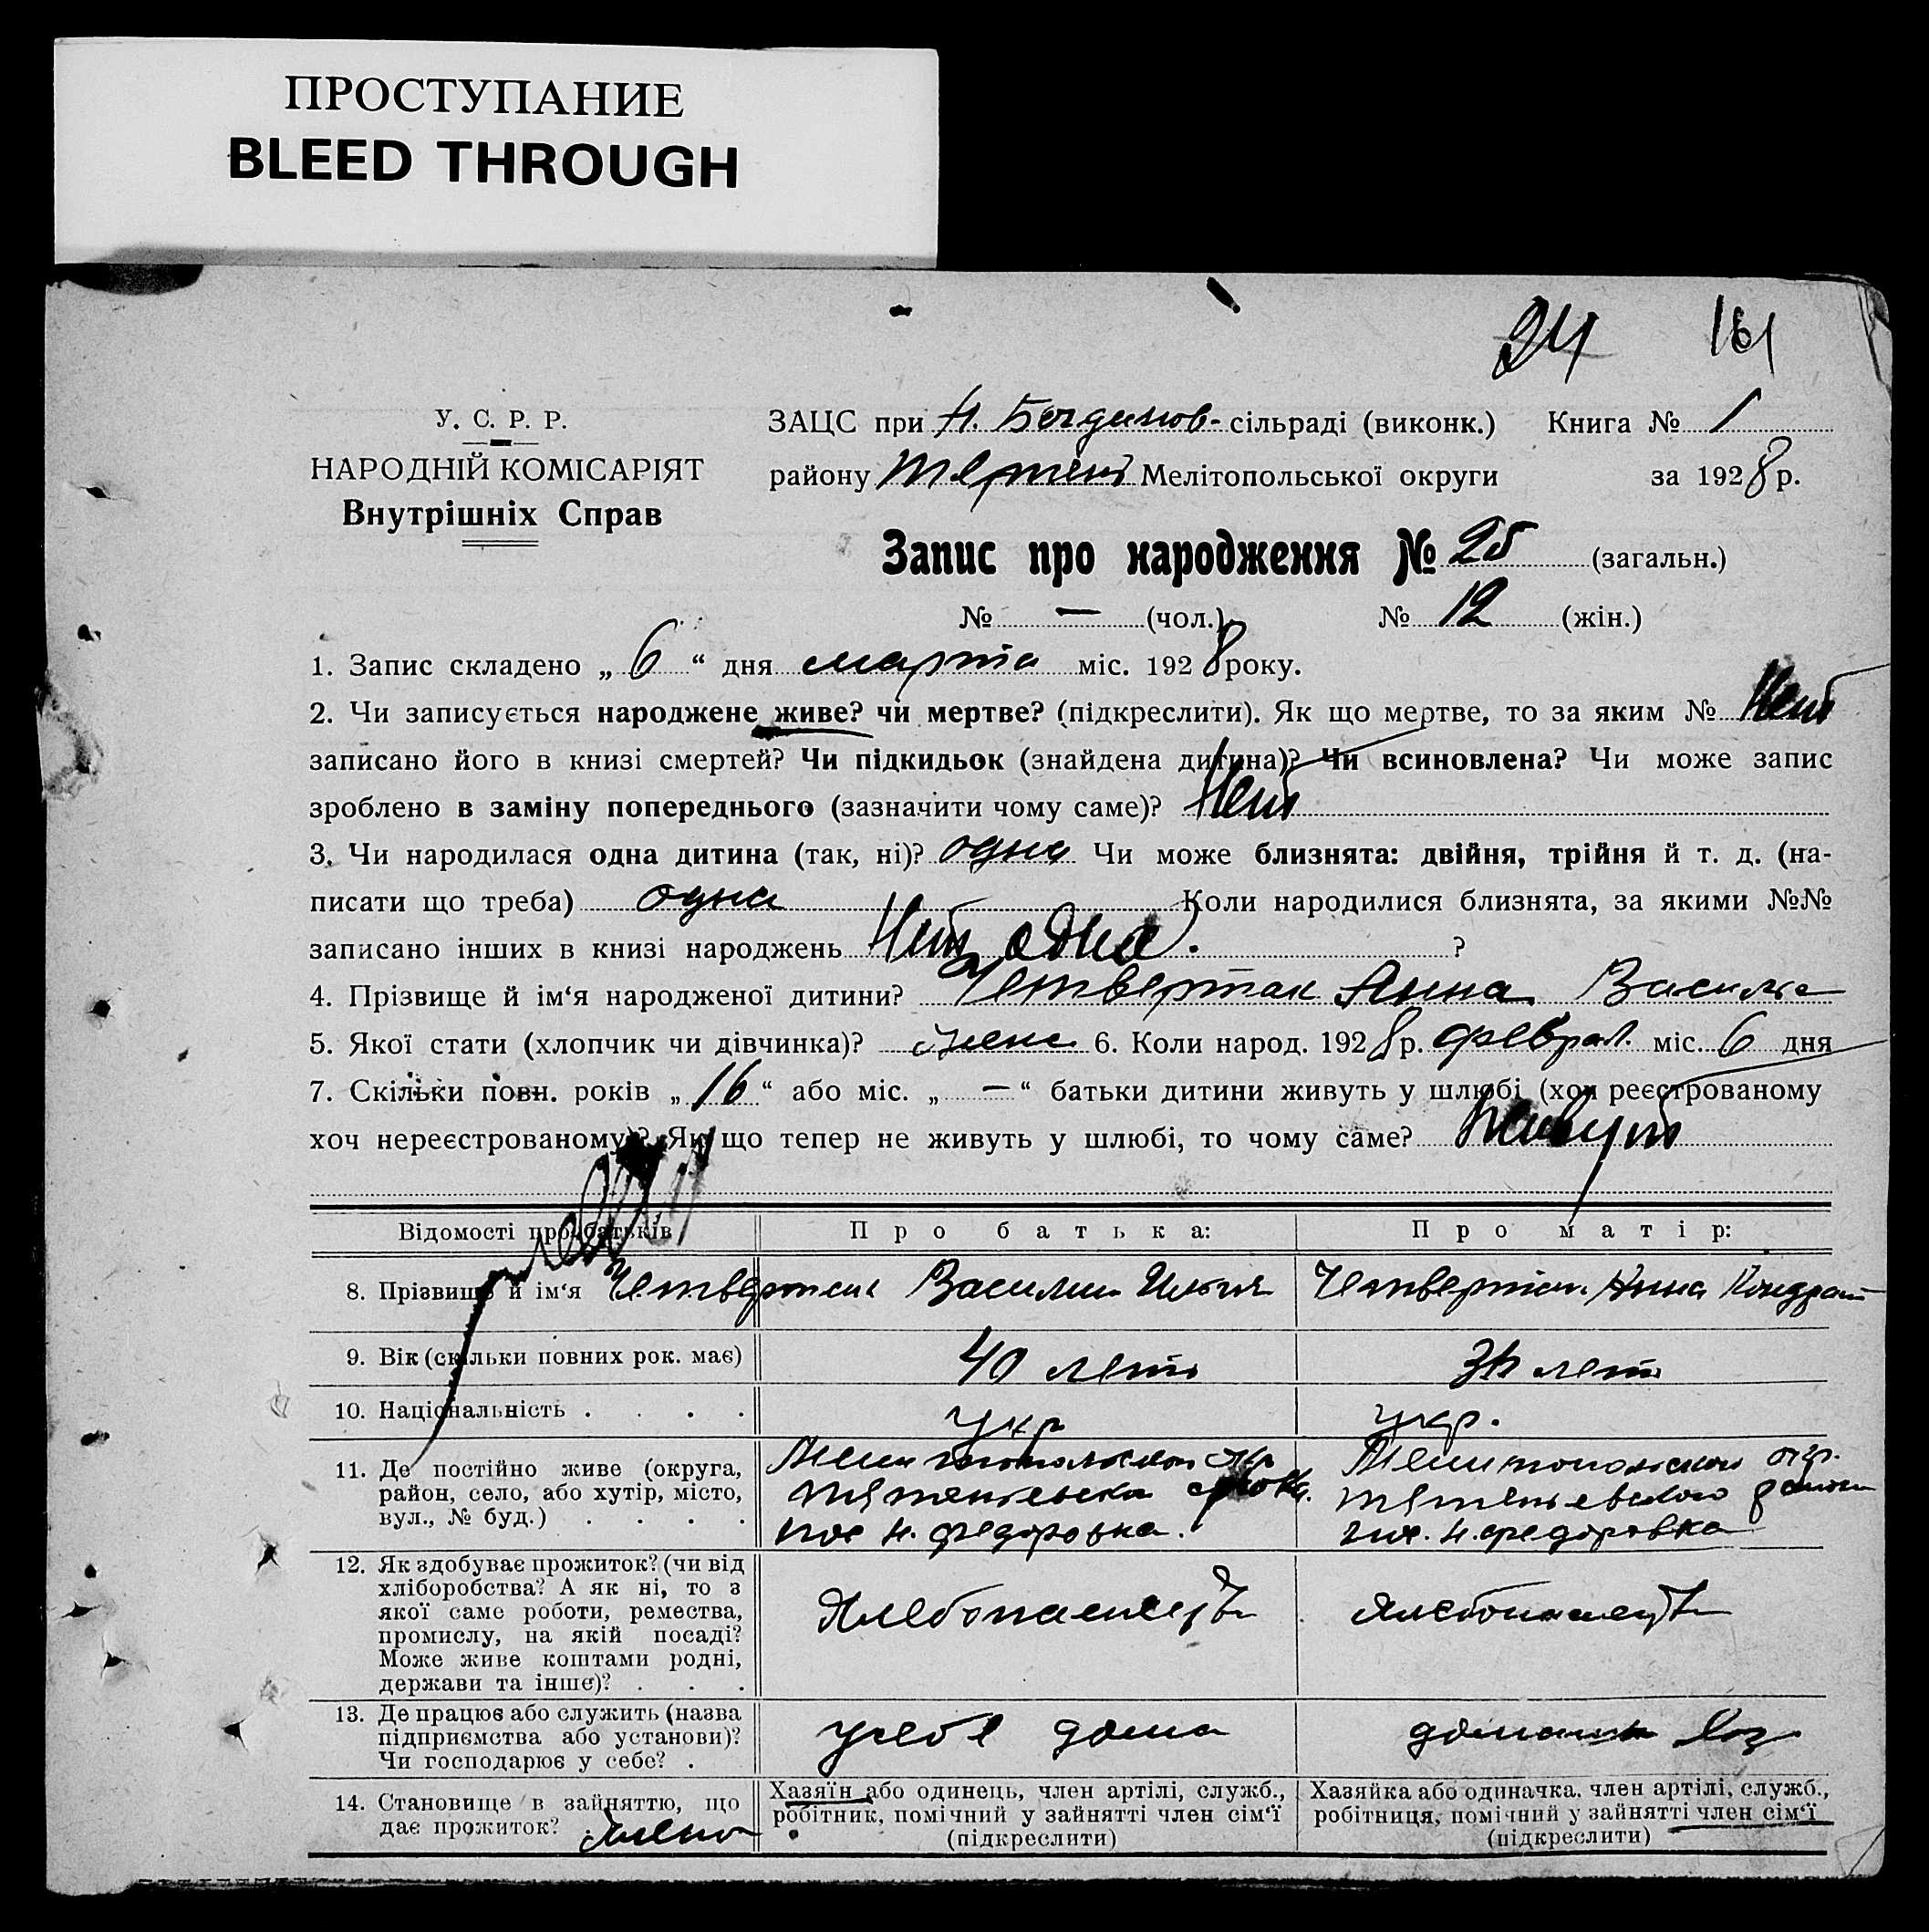 ПРОСТУПАНИЕ
BLEED THROUGH
24 161
У. С. Р. Р.
НАРОДНІЙ КОМІСАРІЯТ
Внутрішніх Справ
ЗАЦС при Н. Богданов- сільраді (виконк.) Книга № 1
району Мелітопольської округи за 1928 р.
Запис про народження № 25 (загальн.)
№ — (чол.) № 12 (жін.)
1. Запис складено „ 6 “ дня марта міс. 1928 року.
2. Чи записується народжене живе? чи мертве? (підкреслити). Як що мертве, то за яким № Нет
записано його в книзі смертей? Чи підкидьок (знайдена дитина)? Чи всиновлена? Чи може запис
зроблено в заміну попереднього (зазначити чому саме)? Нет
3. Чи народилася одна дитина (так, ні)? одна Чи може близнята: двійня, трійня й т. д. (на-
писати що треба) одна Коли народилися близнята, за якими №№
записано інших в книзі народжень Нет одна. ?
4. Прізвище й ім‘я народженої дитини? Четвертак Анна Василье
5. Якої стати (хлопчик чи дівчинка)? женс 6. Коли народ. 1928 р. феврал. міс. 6 дня
7. Скільки повн. років „ 16 “ або міс. „ — “ батьки дитини живуть у шлюбі (хоч реєстрованому
хоч нереєстрованому)? Як що тепер не живуть у шлюбі, то чому саме? живут
Відомості про батьків Про батька: Про матір:
8. Прізвище й ім‘я Четвертак Василий Илья Четвертак Анна Кондрат
9. Вік (скільки повних рок. має) 40 лет лет
10. Національність . . . . укр укр.
11. Де постійно живе (округа, Мелитопольской окр Мелитопольской окр.
район, село, або хутір, місто, района
вул., № буд.) . . . . пос Н. Федоровка. пос. Н. Федоровка
12. Як здобуває прожиток? (чи від
хліборобства? А як ні, то з
якої саме роботи, ремества, Хлебопашец Хлебопашец
промислу, на якій посаді?
Може живе коштами родні,
держави та інше)? . . .
13. Де працює або служить (назва
підприємства або установи)? у себе дома домашн хоз
Чи господарює у себе? .
14. Становище в зайняттю, що Хазяїн або одинець, член артілі, служб., Хазяйка або одиначка, член артілі, служб.,
дає прожиток? робітник, помічний у зайнятті член сім‘ї робітниця, помічний у зайнятті член сім‘ї
(підкреслити) (підкреслити)